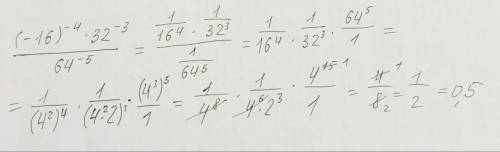 ((-16)^-4 · 32^-3)/(64^-5) = (1/16^4 · 1/32^3)/(1/64^5) = 1/16^4 · 1/32^3 · 64^5/1 =
= 1/(4^2)^4 · 1/(4^2·2)^3 · (4^3)^5/1 = 1/4^8 · 1/(4^6·2^3) · 4^15 1/1 = 4 1/8 2 = 1/2 = 0,5